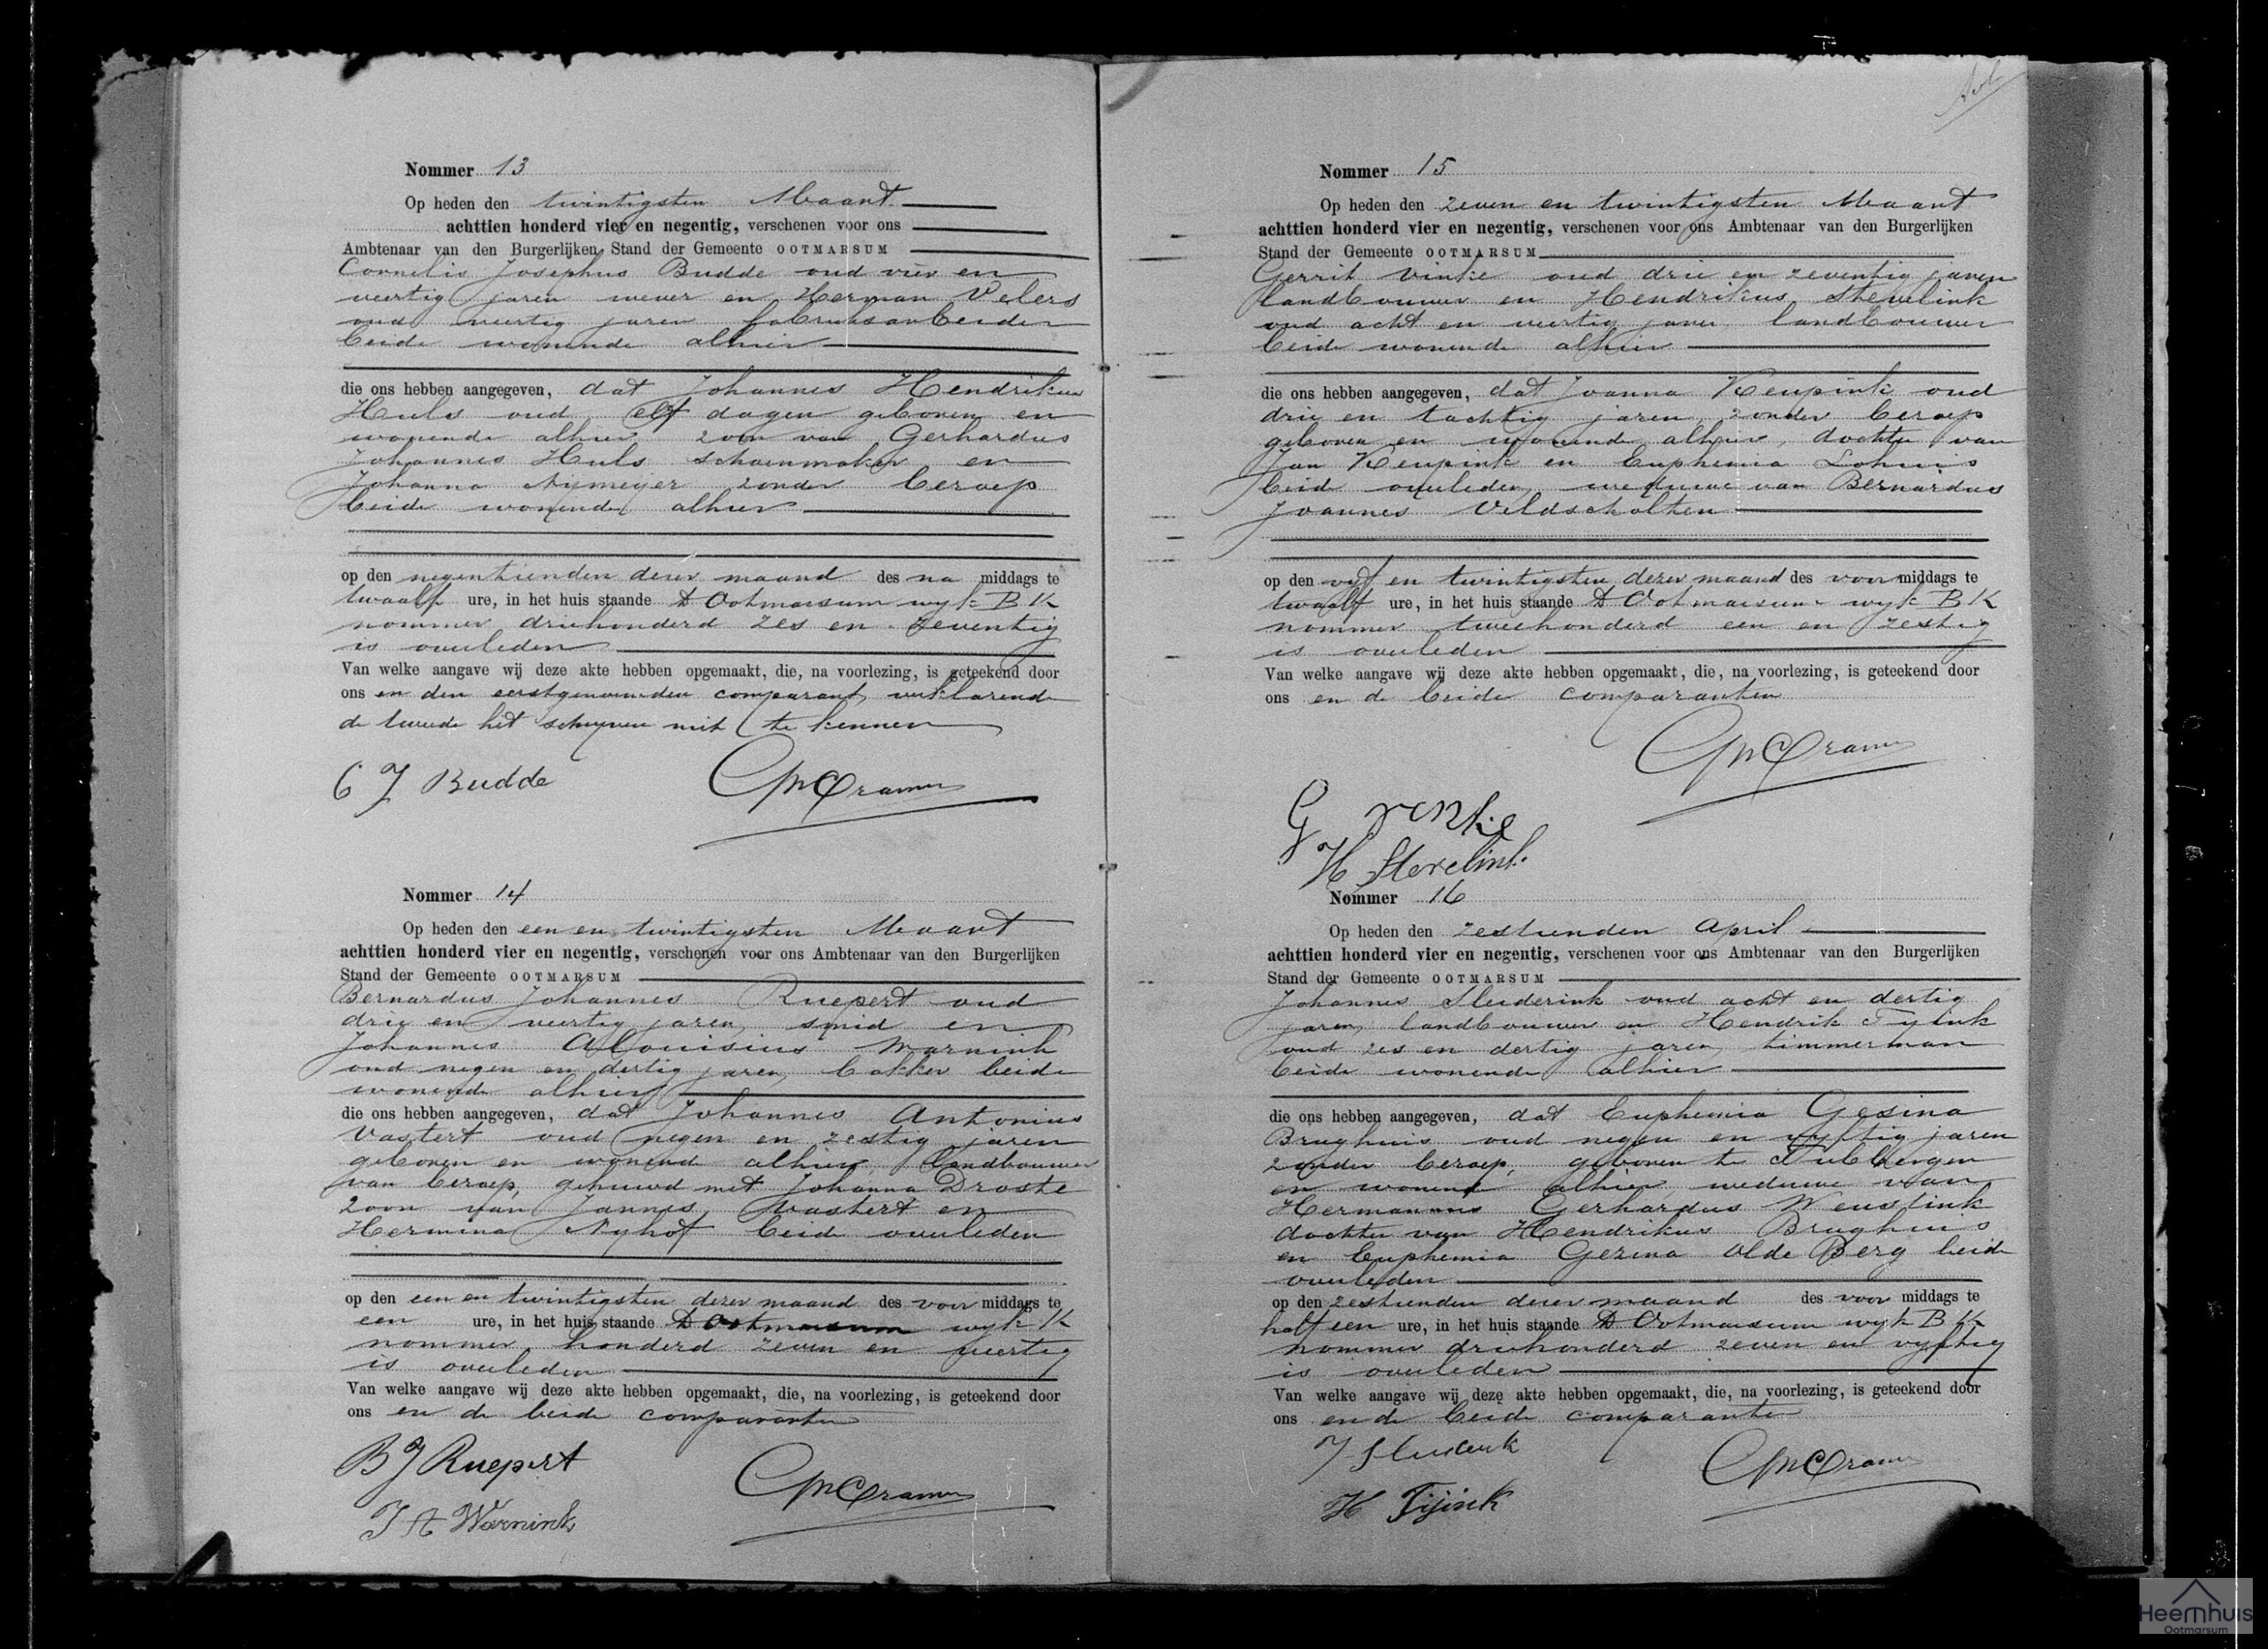 Nommer 13
Op heden den twintigsten Maart
achttien honderd vier en negentig, verschenen voor ons
Ambtenaar van den Burgerlijken Stand der Gemeente OOTMARSUM
Cornelis Josephus Budde oud vier en
veertig jaren wever en Herman Velers
oud veertig jaren fabrieksarbeider
beide wonende alhier
die ons hebben aangegeven, dat Johannes Hendrikus
Huls oud elf dagen geboren en
wonende alhier zoon van Gerhardus
Johannes Huls schoenmaker en
Johanna Nijmeijer zonder beroep
beide wonende alhier
op den negentienden dezer maand des na middags te
twaalf ure, in het huis staande te Ootmarsum wijk B K
nommer driehonderd zes en zeventig
is overleden
Van welke aangave wij deze akte hebben opgemaakt, die, na voorlezing, is geteekend door
ons en den eerstgenoemden comparant, verklarende
de tweede het schrijven niet te kennen
C J Budde
Cramer
Nommer 14
Op heden den een en twintigsten Maart
achttien honderd vier en negentig, verschenen voor ons Ambtenaar van den Burgerlijken
Stand der Gemeente OOTMARSUM
Bernardus Johannes Ruepert oud
drie en veertig jaren, smid en
Johannes Alouisius Warnink
oud negen en dertig jaren, bakker beide
wonende alhier
die ons hebben aangegeven, dat Johannes Antonius
Vastert oud negen en zestig jaren
geboren en wonende alhier, landbouwer
van beroep, gehuwd met Johanna Droste
zoon van Jannes Vastert en
Hermina Nijhof beide overleden
op den een en twintigsten dezer maand des voor middags te
een ure, in het huis staande te Ootmarsum wijk K
nommer honderd zeven en veertig
is overleden
Van welke aangave wij deze akte hebben opgemaakt, die, na voorlezing, is geteekend door
ons en de beide comparanten
B J Ruepert
Cramer
J A Warnink
Nommer 15
Op heden den zeven en twintigsten Maart
achttien honderd vier en negentig, verschenen voor ons Ambtenaar van den Burgerlijken
Stand der Gemeente OOTMARSUM
Gerrit Vinke oud drie en zeventig jaren
landbouwer en Hendrikus Stevelink
oud acht en veertig jaren landbouwer
beide wonende alhier
die ons hebben aangegeven, dat Joanna Keupink oud
drie en tachtig jaren, zonder beroep
geboren en wonende alhier, dochter van
Jan Keupink en Euphemia Lohuis
beide overleden, weduwe van Bernardus
Joannes Veldscholten
op den vijf en twintigsten dezer maand des voor middags te
twaalf ure, in het huis staande te Ootmarsum wijk B K
nommer tweehonderd een en zestig
is overleden
Van welke aangave wij deze akte hebben opgemaakt, die, na voorlezing, is geteekend door
ons en de beide comparanten
Cramer
G Vinke
H Stevelink
Nommer 16
Op heden den zestienden April
achttien honderd vier en negentig, verschenen voor ons Ambtenaar van den Burgerlijken
Stand der Gemeente OOTMARSUM
Johannes Sleiderink oud acht en dertig
jaren, landbouwer en Hendrik Tijink
oud zes en dertig jaren, timmerman
beide wonende alhier
die ons hebben aangegeven, dat Euphemia Gesina
Brughuis oud negen en vijftig jaren
zonder beroep, geboren te Tubbergen
en wonend alhier, weduwe van
Hermannus Gerhardus Weustink
dochter van Hendrikus Brughuis
en Euphemia Gezina Olde Berg beide
overleden
op den zestienden dezer maand des voor middags te
half een ure, in het huis staande te Ootmarsum wijk B K
nommer driehonderd zeven en vijftig
is overleden
Van welke aangave wij deze akte hebben opgemaakt, die, na voorlezing, is geteekend door
ons en de beide comparanten
Cramer
H Tijink
Heemhuis
Ootmarsum